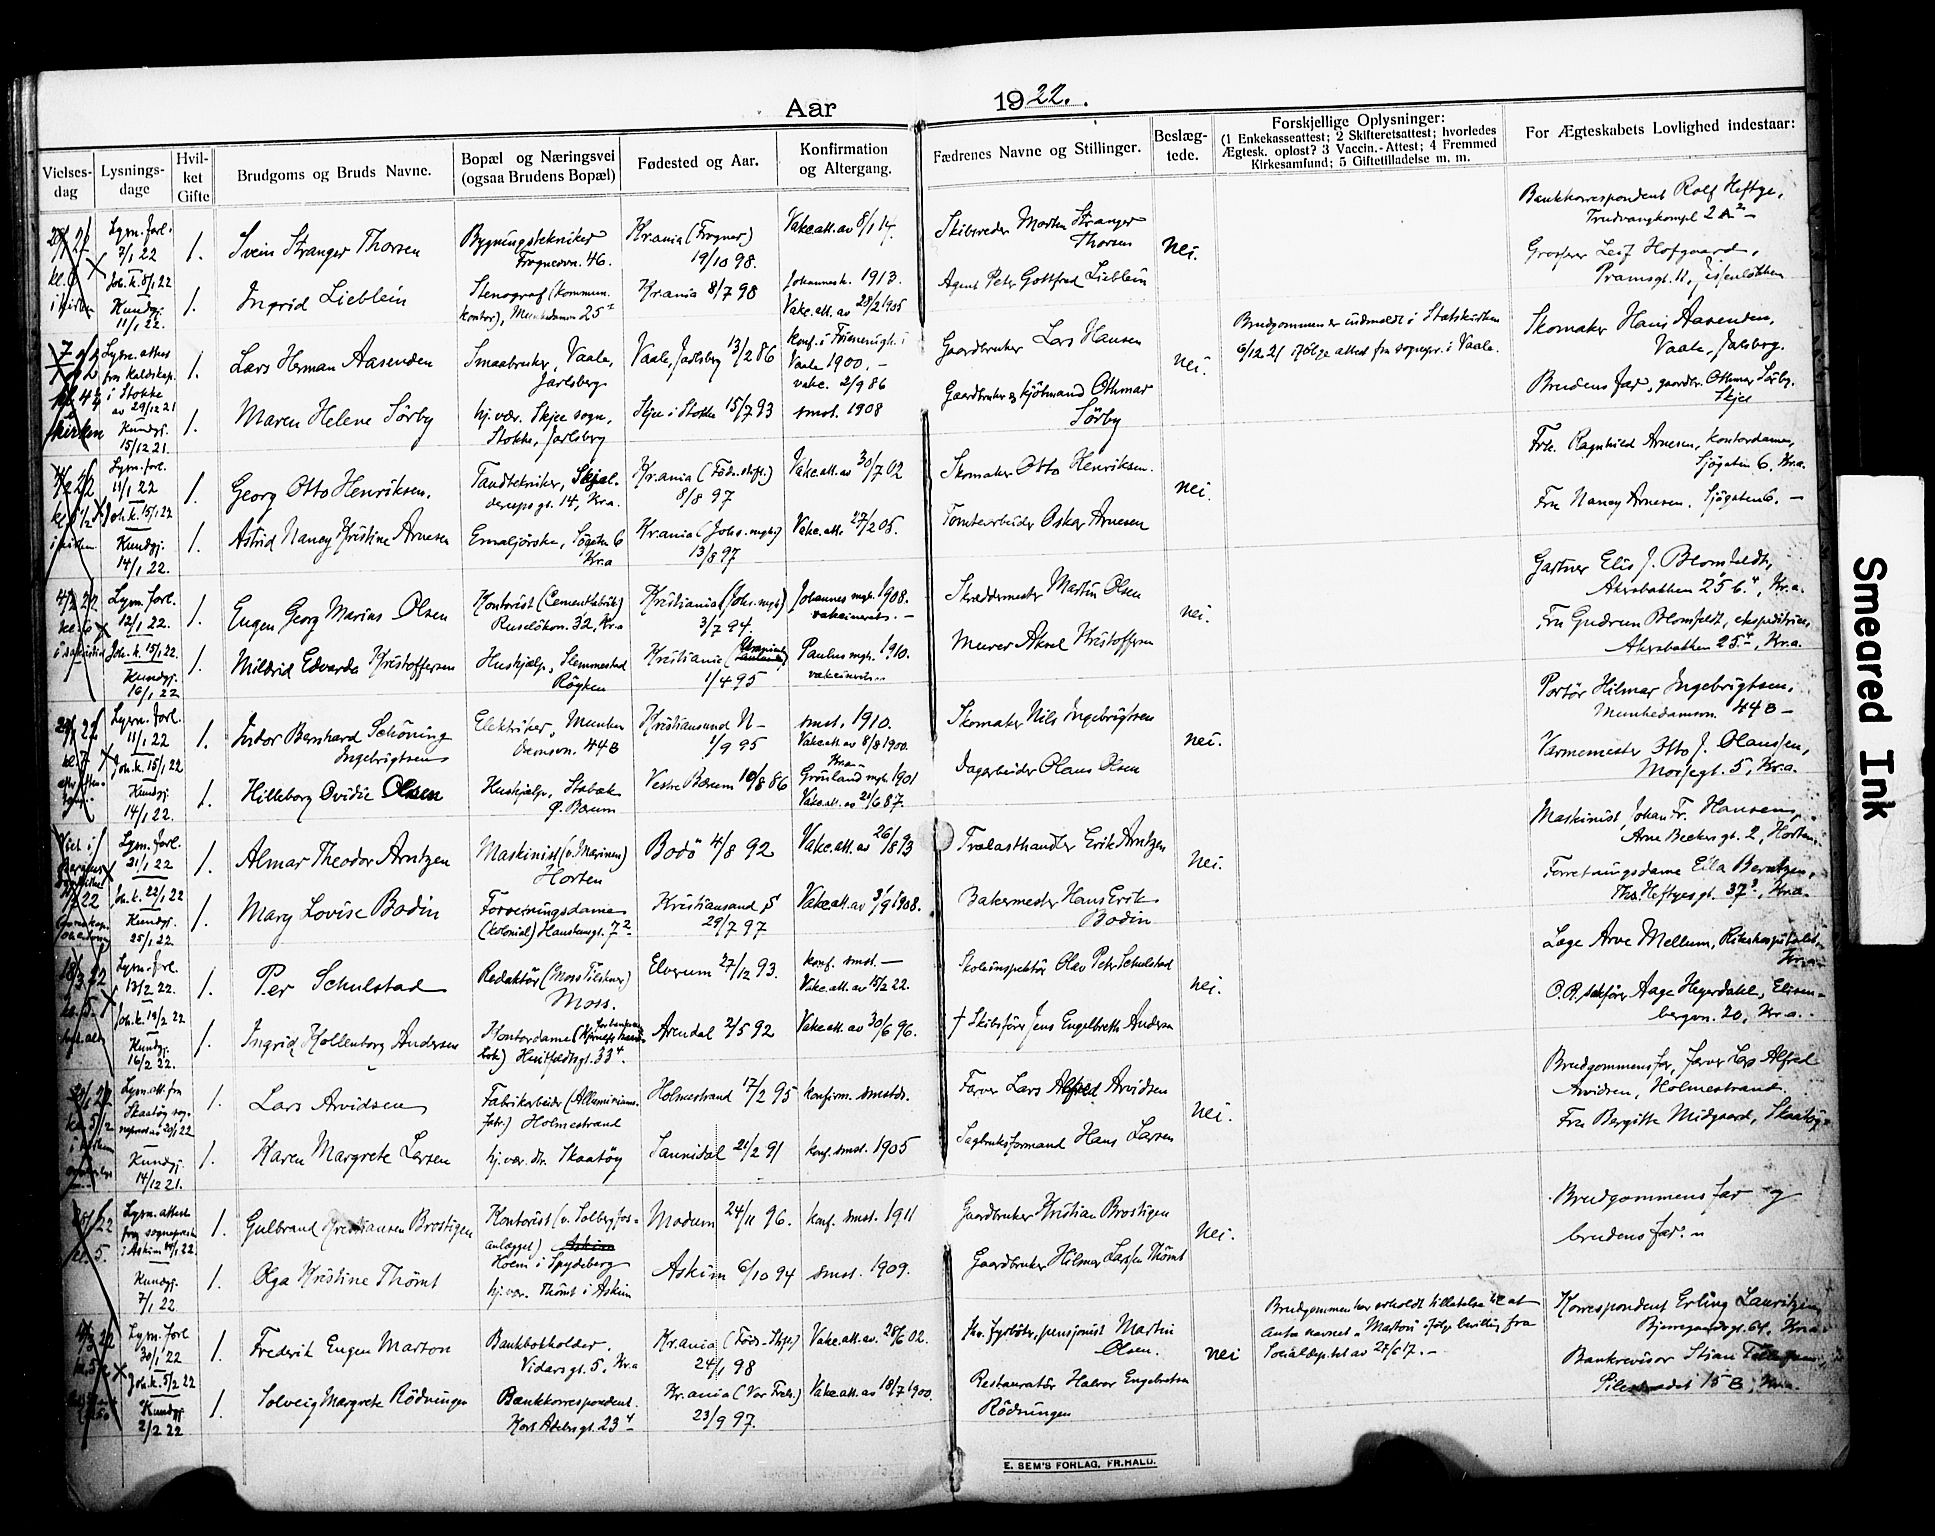 Aar 1922.
Vielses-
dag
Lysnings-
dage
Hvil-
ket
Gifte
Brudgoms og Bruds Navne.
Bopæl og Næringsvei
(ogsaa Brudens Bopæl)
Fødested og Aar.
Konfirmation
og Altergang.
Fædrenes Navne og Stillinger.
Beslæg-
tede.
Forskjellige Oplysninger:
(1 Enkekasseattest; 2 Skifteretsattest; hvorledes
Ægtesk. oplost? 3 Vaccin.-Attest; 4 Fremmed
Kirkesamfund; 5 Giftetilladelse m. m.
For Ægteskabets Lovlighed indestaar:
Lysn. forl.
7/1 22
Joh. k. 8/1 22
Kundgj.
11/1 22.
1.
Svein Stranger Thorsen
Bygningstekniker
Frognervn. 46.
Kr.ania (Frogner)
19/10 98.
Vakc.att. av 8/1 14.
Skibsreder Morten Stranger
Thorsen
Nei.
Bankkorrespondent Rolf Heftye,
1.
Ingrid Lieblein
Stenograf (kommun.
kontor), Munkedamsv 25
Kr.ania 8/7 98
Johannesk. 1913.
Vakc.att. av 28/2 1905
Agent Peter Gottfred Lieblein
Grosserer Leif Hofgaard,
Lysn. attest
i Stokke
av 29/12 21
Kundgj.
15/12 21.
1.
Lars Herman Aasenden
Smaabruker, Vaale,
Jarlsberg
Vaale, Jarlsberg 13/2 86
Vaale 1900. –
vakc. 2/9 86
Gaardbruker Lars Hansen
nei.
Brudgommen er indmeldt i Statskirken
6/12 21 ifølge attest fra sognepr. i Vaale.
Skomaker Hans Aasenden,
Vaale, Jarlsberg.
1.
Maren Helene Sørby
hj. vær. Skjee sogn,
Stokke, Jarlsberg
Skjee i Stokke 15/7 93
smst. 1908
Gaardbruker og kjøbmand Othmar
Sørby
Brudens far, gaardbr. Othmar Sørby.
Skjee
Lysn. forl.
11/1 22
Joh. k. 15/1 22
Kundgj.
14/1 22.
1.
Georg Otto Henriksen.
Tandtekniker, Skjal-
dersgt. 14, Kr.a.
Kr.ania (Føds.stift.)
8/8 97
Vakc.att. av 30/7 02
Skomaker Otto Henriksen.
nei.
Frk. Ragnhild Arnesen, kontordame,
Sjøgaten 6, Kr.a.
1.
Astrid Nancy Kristine Arnesen
Kr.a
Kr.ania (Johs. mgh.)
13/8 97
Vakc.att. 27/2 05.
Tomtearbeider Oskar Arnesen
Fru Nancy Arnesen. Sjøgaten 6. –
Lysn. forl.
12/1 22.
Joh. k. 15/1 22.
Kundgj.
16/1 22
1.
Eugen Georg Marius Olsen
Kontorist (Cementfabrik)
Ruseløkvn. 32, Kr.a
Kristiania (Johs. mgh.)
3/7 94
Johannes mgh. 1908.
vakcinerets. –
Skræddermester Martin Olsen
nei.
Gartner Elis J. Blomfeldt,
Akersbakken 25 6., Kr.a.
1.
Mildrid Edvarda Kristoffersen
Hushjelp, Slemmestad
Røyken
Kristiania
1/4 95
Paulus mgh. 1910.
Murer Aksel Kristoffersen
Fru Gudrun Blomfeldt, ekspeditrice,
Akersbakken 25, Kr.a.
Lysn. forl.
11/1 22
Joh. k. 15/1 22
Kundgj.
14/1 22.
1.
Indor Bernhard Schöning
Ingebrigtsen
Elektriker, Munke-
damsvn. 44 B
Kristiansund N –
1/9 95
smst. 1910.
Vakc.att. av 8/8 1900.
Skomaker Nils Ingebrigtsen
nei.
Portør Hilmar Ingebrigtsen,
Munkedamsvn. 44 B –
1.
Hilleborg Ovidie Olsen
Hushjelp, Stabæk
Ø. Bærum
Vestre Bærum 10/8 86
Grønland mgh. 1901
Vakc.att. av 21/6 87.
Dagarbeider Olaus Olsen
Varmemester Otto J. Olaussen,
Morsegt. 5, Kr.a.
Lysn. forl.
21/1 22
Joh. k. 22/1 22
Kundgj.
25/1 22.
1.
Almar Theodor Arntzen
Maskinist (v. Marinen)
Horten
Bodö 4/8 92
Vakc.att. av 26/8 93
Trælasthandler Erik Arntzen
Nei.
Maskinist Johan Fr. Hansen,
Arne Beckers gt. 2, Horten.
1.
Mary Lovise Bodin
Forretningsdame
(Kolonial) Hausmsgt. 7
Kristiansand S
29/7 97
Vakc.att. av 3/9 1908.
Bakermester Hans Erik
Bodin
Forretningsdame Ella Berntzen,
Ths. Heftyesgt. 37, Kr.a.
Lysn. forl.
13/2 22.
Joh. k. 19/2 22
Kundgj.
16/2 22.
1.
Per Schulstad
Redaktör (Moss Tilskuer)
Moss.
Elverum 27/12 93.
konf. smst. –
Vakc.att. av 15/2 22.
Skoleinspektör Olav Peter Schulstad
nei.
Læge Arve Mellum, Rikshospitalet,
Kr.a.
1.
Ingrid Kollenborg Andersen
Huitfeldtsgt. 33.
Arendal 2/5 92
Vakc.att. av 30/6 96.
† Skibsfører Jens Engelbreth Andersen
O.R. sakfører Aage Heyerdahl, Elisen-
bergvn. 20, Kr.a.
Lysn. att. fra
Skaatøy sog-
Kundgj.
14/12 21.
1.
Lars Arvidsen
Fabrikarbeider (Alluminiums-
fabr.) Holmestrand
Holmestrand 17/2 95
konfirm. smstds.
Farver Lars Alfred Arvidsen
nei.
Brudgommens far, farver Lars Alfred
Arvidsen, Holmestrand.
1.
Karen Margrete Larsen
hj. vær. dtr. Skaatøy
Sannidal 21/2 91
konf. smst. 1905
Sagbruksformand Hans Larsen
Fru Bergitte Midgaard, Skaatøy
Lysn. attest
fra sogneprest
i Askim 14/1 22.
Kundgj.
7/1 22
1.
Gulbrand Kristiansen Brostigen
Kontorist (v. Solbergfos-
anlægget)
i Spydeberg
Modum 24/11 96.
konf. smst. 1911
Gaardbruker Kristian Brostigen
nei.
Brudgommens far og
brudens far.
1.
Olga Kristine Thömt
hj. vær. Thömt i Askim
Askim 6/10 94
smst. 1909.
Gaardbruker Hilmar Larsen Thömt
Lysn. forl
30/1 22
Joh. k. 5/2 22
Kundgj.
2/2 22
1.
Frederik Eugen Marton
Bankbokholder.
Vidarsgt. 5. Kr.a
Kr.ania (Føds.stift.)
24/1 98
Vakc.att. av. 28/6 02.
Fhv. fyrbøter, pensjonist Martin
Olsen.
nei
Brudgommen har erholdt tillatelse til at
anta navnet „Marton" ifølge bevilling fra
Socialdep.tet av 27/6 17. –
Korrespondent Erling Lauritzen
1.
Solveig Margrete Rödningen
Bankkorrespondent.
Kort Adelersgt. 23
Kr.ania (Vor Frels.)
23/9 97.
Vakc.att. av 18/7 1900.
Restauratör Halvor Engebretsen
Rödningen
Bankrevisor Stian
Pilestrædet 15 B, Kr.a.
E. SEM'S FORLAG, FR.HALD.
Smeared Ink